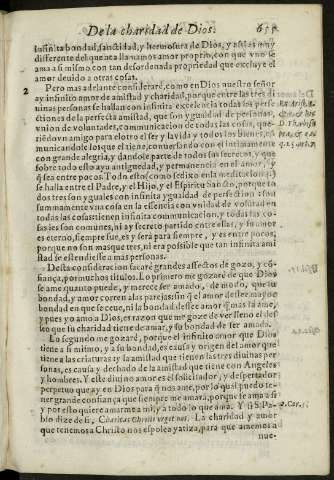 De la charidad de Dios. 
infinita bondad, sanctidad, y hermosura de Dios, y assi es muy
differente del que acá llamamos amor proprio, con que vno se
ama a si mismo con tan desordenada propriedad que excluye el
amor deuido a otras cosas.
2 Pero mas adelante considerarè, como en Dios nuestro señor
ay infinito amor de amistad y charidad, porque entre las tres di
uinas personas se hallan con infinita excelencia todas las perfe
ctiones de la perfecta amistad, que son ygualdad de personas,
vnion de voluntades, communicacion de todas las cosas, que-
riédo vn amigo para el otro el ser y la vida y todos los bienes, co
municandole los que el tiene, conuersando con el intimamente
con grande alegria, dandole parte de todos sus secretos, y que
sobre todo esto aya antiguedad, y permanencia en el amor, y
q̃ sea entre pocos. Todo esto (como se dixo en la meditacion)
se halla entre el Padre, y el Hijo, y el Espiritu sancto, porque to
dos tres son yguales con infinita ygualdad de perfection: son
summamente vna cosa en la essencia con vnidad de voluntad en
todas las cosas: tienen infinita communicacion, y todas las co-
sas les son comunes, ni ay secreto partido entre ellas, y su amor
es eterno, siempre fue, es y serà para siempre, y es entre pocos,
porque no son mas que tres, ni era possible que tan infinita ami
stad se estendiesse a mas personas.
Desta consideracion sacarè grandes affectos de gozo, y con-
fiança, por muchos titulos. Lo primero me gozarè de que Dios
se ame quanto puede, y merece ser amado, de modo, que su
bondad, y amor corren a las parejas: sin q̃ el amor desfee mayor
bondad en que se ceue, ni la bondad desee amor q̃ mas la ame,
y pues yo amo a Dios, es razon que me goze de ver lleno el des-
seo que su charidad tiene de amar, y su bondad de ser amada.
Lo segundo me gozarè, porque el infinito amor que Dios
tiene a si mismo, y a su bondad, es causa y origen del amor que
tiene a las criaturas: y la amistad que tienen las tres diuinas per
sonas, es causa y dechado de la amistad que tiene con Angeles
y hombres. Y este diuino amor es el solicitador, y despertador
perpetuo que ay en Dios para q̃ nos ame, por lo qual puedo te-
ner grande confiança que siempre me amarà, porque se ama a si
y por esto quiere amarme a mi, y a todo lo que ama. Y si S. Pa-
blo dize de si, Charitas Christi vrget nos. La charidad y amor
que tenemos a Christo nos espolea y atiza, para que amemos a
nue-